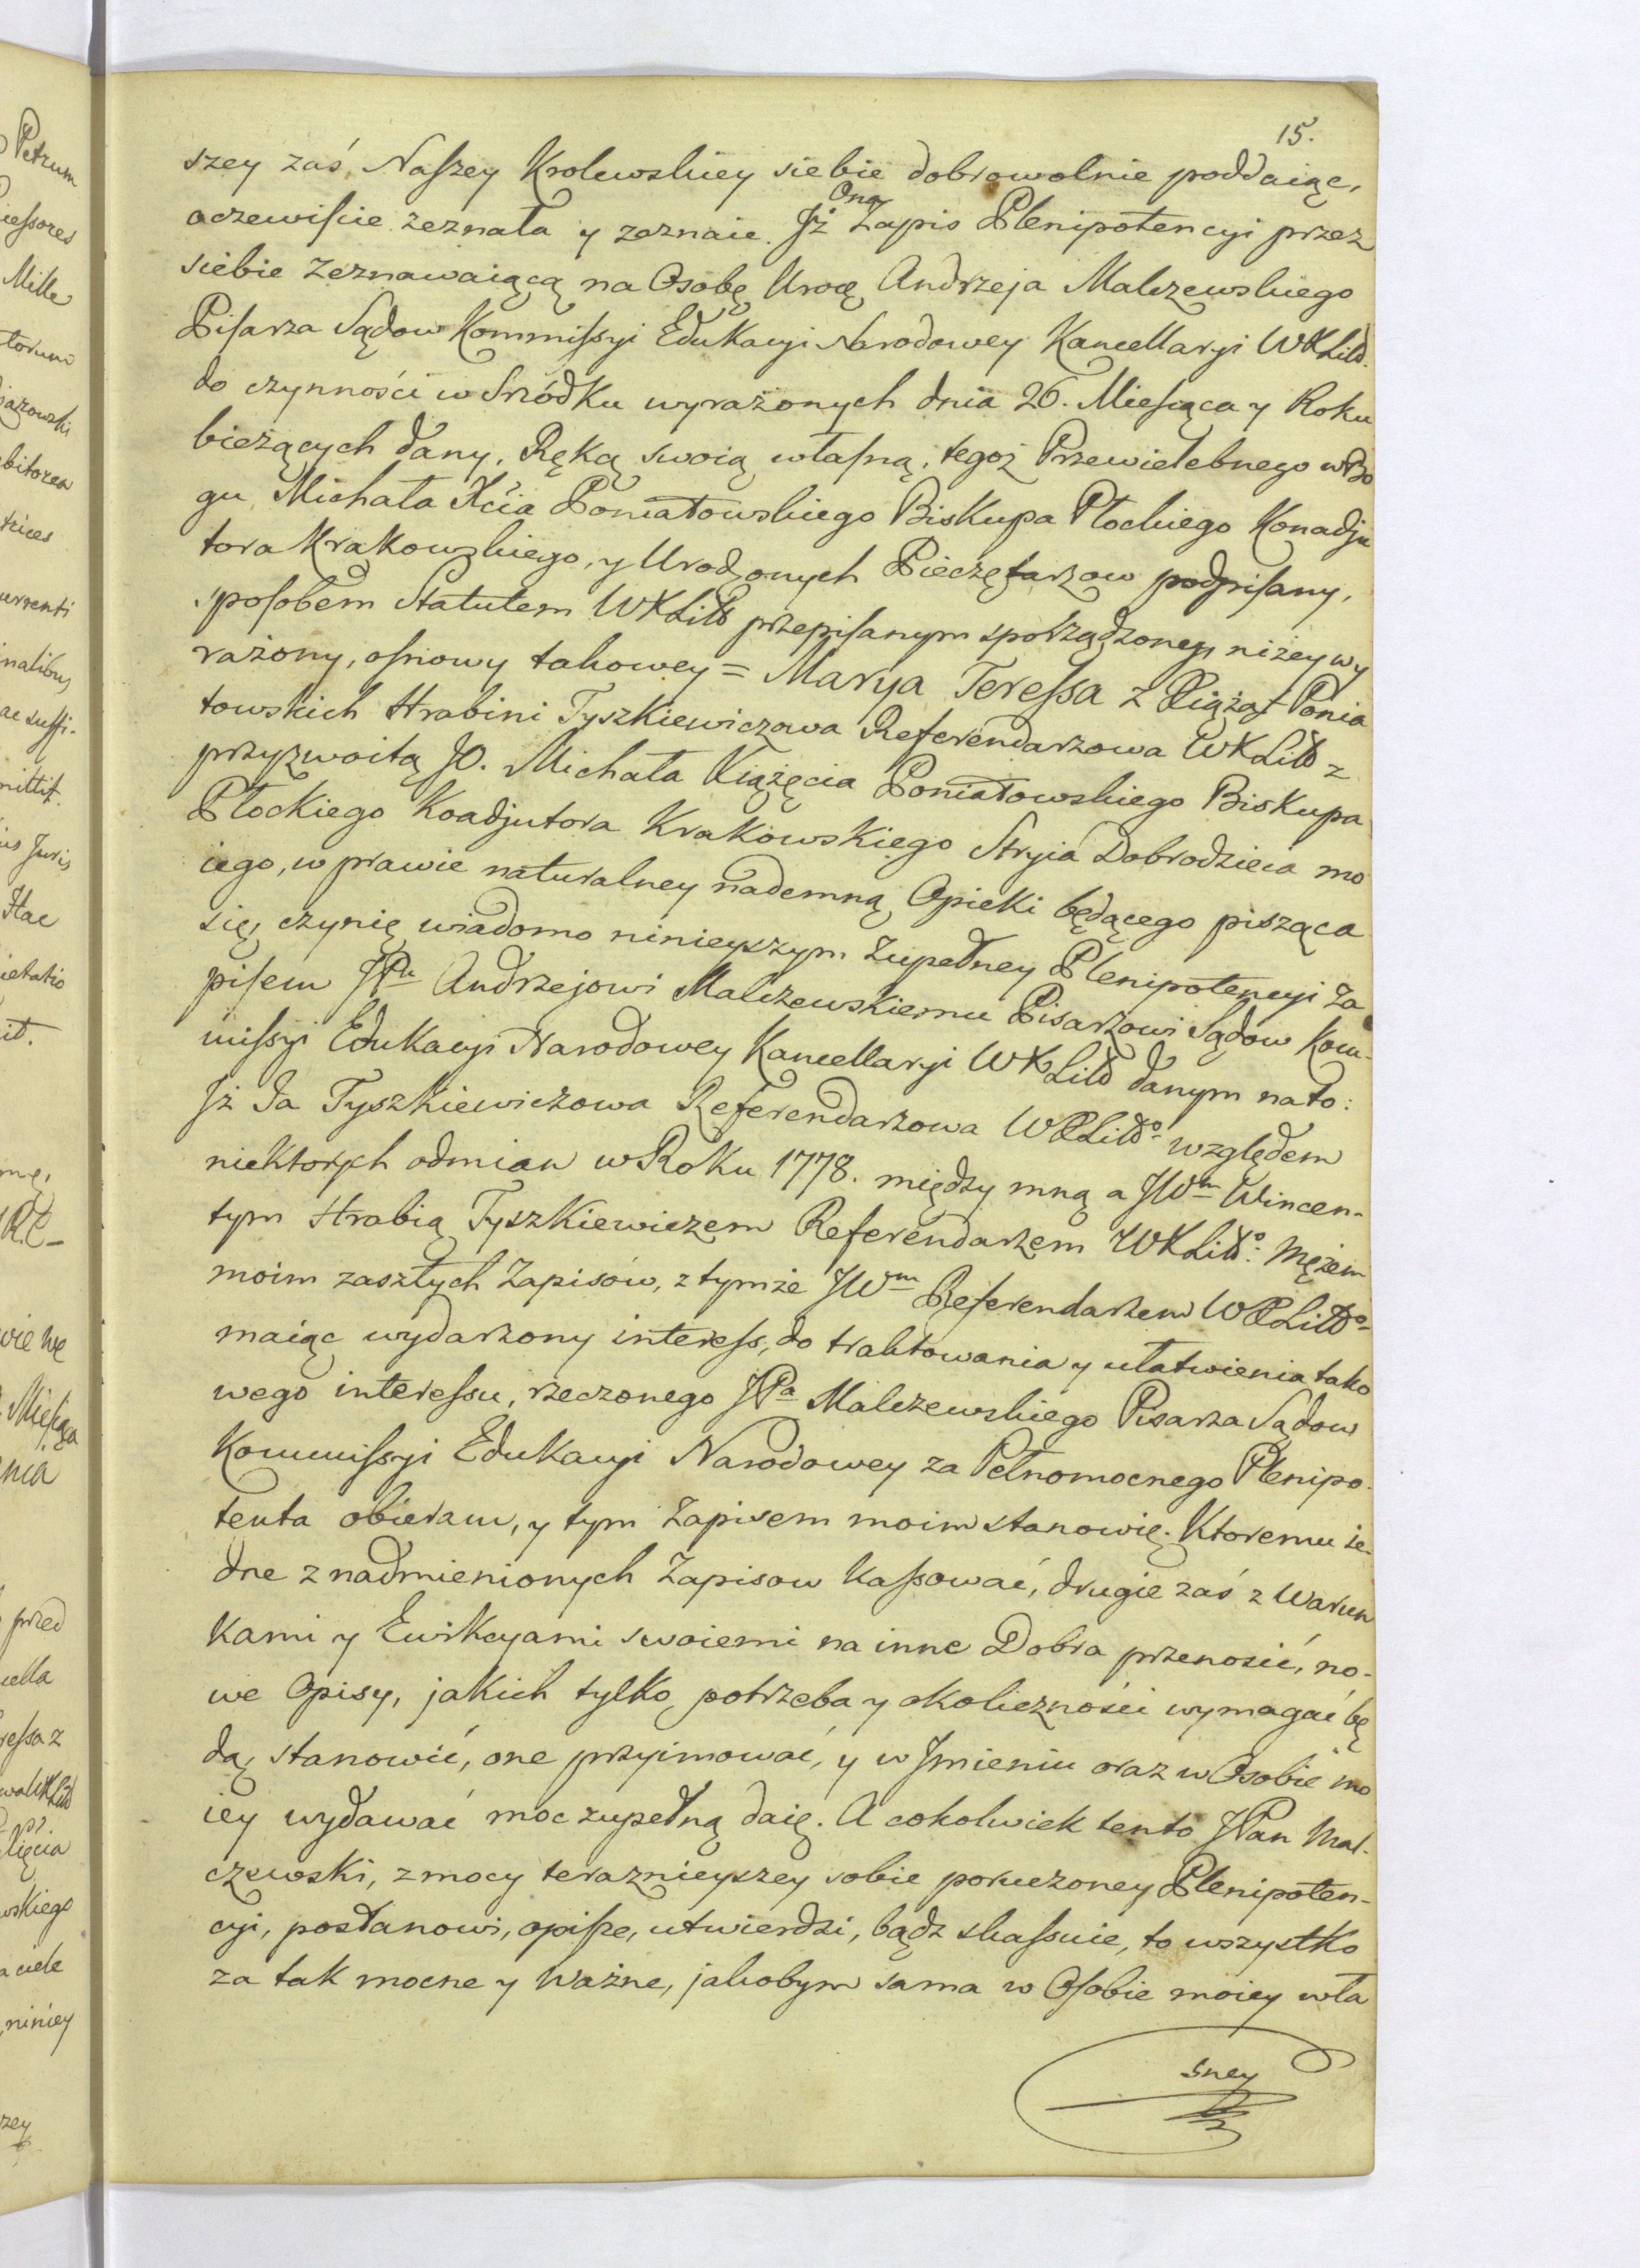 15.
szey zaś Naszey Krolewskiey siebie dobrowolnie poddaiąc,
oczewiście zeznała y zeznaie. Jż Ona Zapis Plenipotencyi przez
siebie Zeznawaiącą na Osobę Urodz Andrzeja Malczewskiego
Pisarza Sądow Kommissyi Edukacyi Narodowey Kancellaryi WXLitt.
do czynności w Srzódku wyrażonych dnia 26. Miesiąca y Roku
bieżących dany, Ręką swoią własną, tegoż Przewielebnego w Bo
gu Michała Xcia Poniatowskiego Biskupa Płockiego Koadju
tora Krakowskiego, y Urodzonych Pieczętarzow podpisany,
sposobem Statutem WXLitt przepisanym sporządzony, niżey wy
rażony, osnowy takowey = Marya Teressa z Xiążąt Ponia
towskich Hrabini Tyszkiewiczowa Referendarzowa WXLitt z
przyzwoitą JO. Michała Xiążęcia Poniatowskiego Biskupa
Płockiego Koadjutora Krakowskiego Stryia Dobrodzieia mo
iego, w prawie naturalney nademną Opieki będącego pisząca
się, czynię wiadomo ninieyszym Zupełney Plenipotencyi Za
pisem JPu Andrzejowi Malczewskiemu Pisarzowi Sądow Kom-
missyi Edukacyi Narodowey Kancellaryi WXLitt danym na to:
Jż Ja Tyszkiewiczowa Referendarzowa WXLitto względem
niektorych odmian w Roku 1778. między mną a JWm Wincen-
tym Hrabią Tyszkiewiczem Referendarzem WXLitto: Mężem
moim zaszłych Zapisów, z tymże JWm Referendarzem WXLitto
maiąc wydarzony interess, do traktowania y ułatwienia tako
wego interessu, rzeczonego JPa Malczewskiego Pisarza Sądow
Kommissyi Edukacyi Narodowey za Pełnomocnego Plenipo-
tenta obieram, y tym Zapisem moim stanowię. Ktoremu ie-
dne z nadmienionych Zapisow kassować, drugie zaś z Warun
kami y Ewikcyami swoiemi na inne Dobra przenosić, no-
we Opisy, jakich tylko potrzeba y okoliczności wymagać bę
dą, stanowić, one przyimować, y w Jmieniu oraz w Osobie mo
iey wydawać moc zupełną daię. A cokolwiek tento JPan Mal-
czewski, z mocy teraznieyszey sobie poruczoney Plenipoten-
cyi, postanowi, opisze, utwierdzi, bądz skassuie, to wszystko
za tak mocne y ważne, jakobym sama w Osobie moiey wła
sney